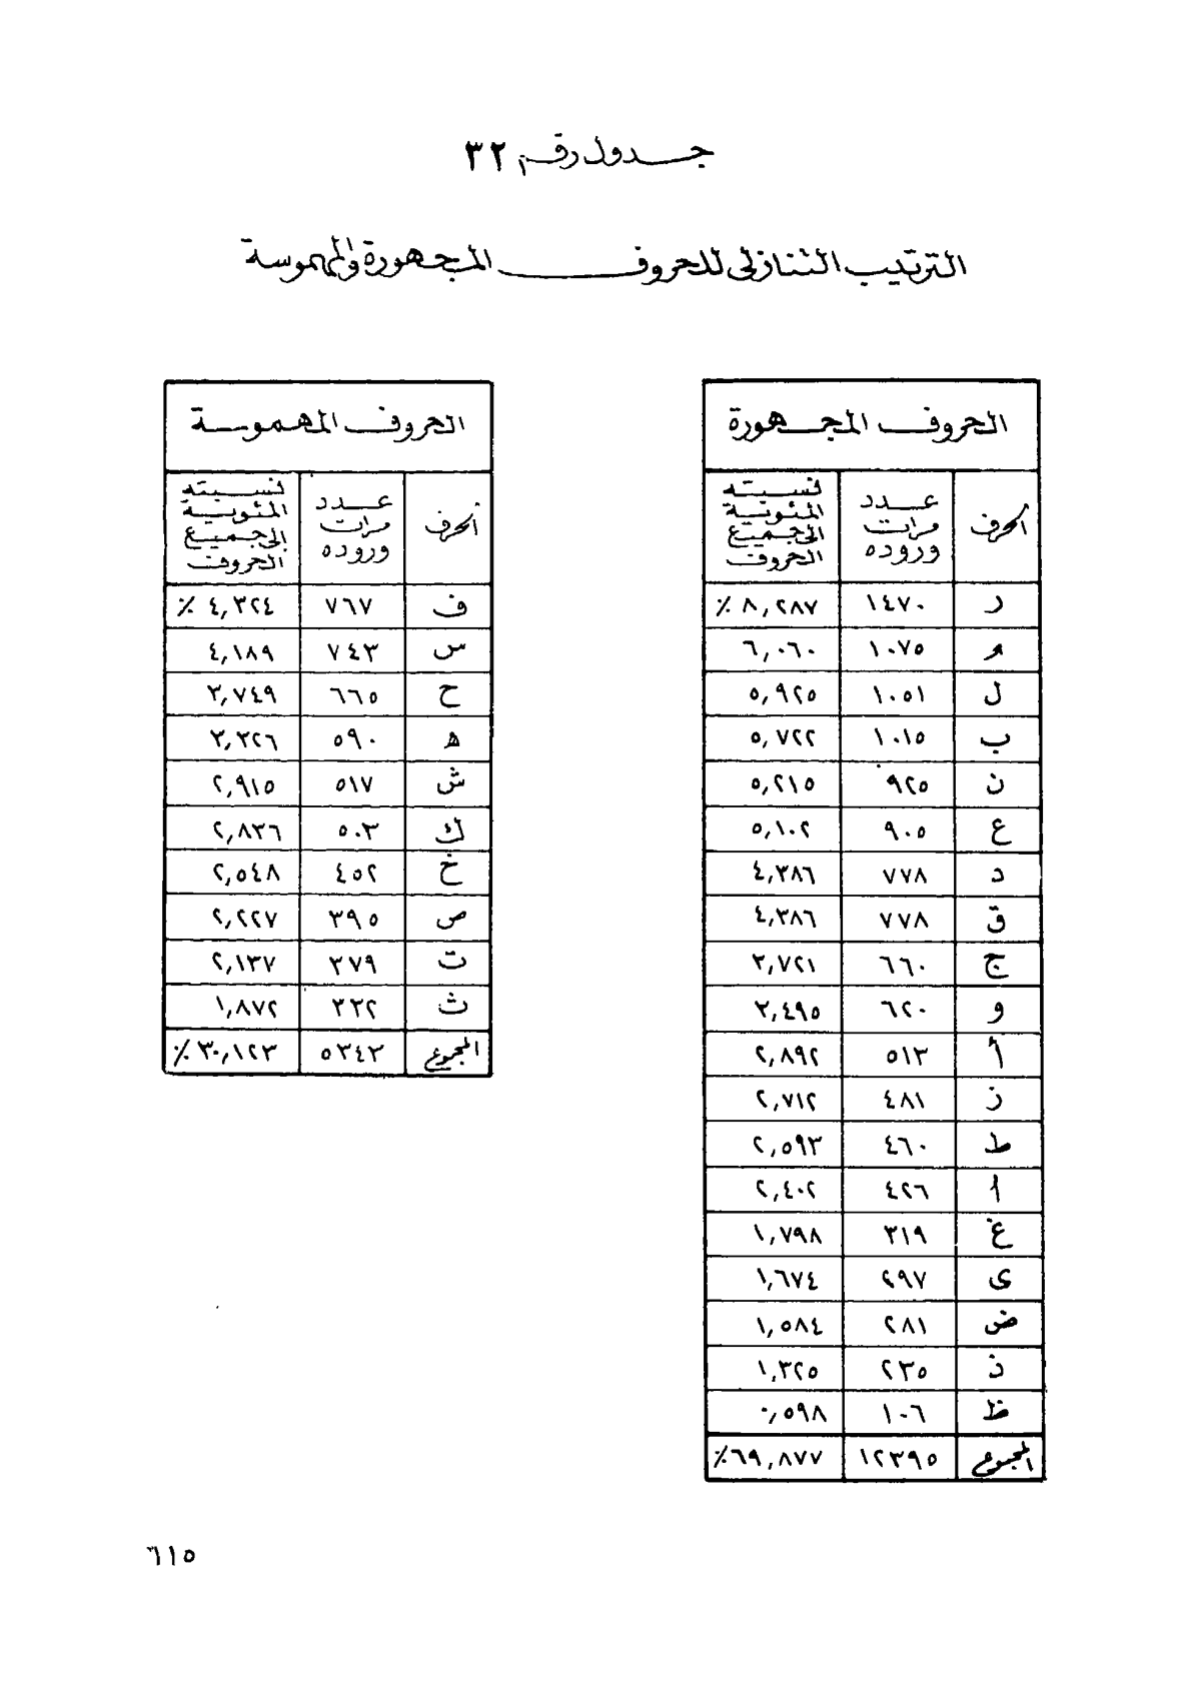 جدول رقم ٣٢
الترتيب التنازلى للحروف المجهورة والمهموسة
الحروف المجهورة
الحرف | عدد مرات وروده | نسبته المئوية الى جميع الحروف
ر | ١٤٧٠ | ٨,٢٨٧ ٪
م | ١٠٧٥ | ٦,٠٦٠
ل | ١٠٥١ | ٥,٩٢٥
ب | ١٠١٥ | ٥,٧٢٢
ن | ٩٢٥ | ٥,٢١٥
ع | ٩٠٥ | ٥,١٠٢
د | ٧٧٨ | ٤,٣٨٦
ق | ٧٧٨ | ٤,٣٨٦
ج | ٦٦٠ | ٣,٧٢١
و | ٦٢٠ | ٣,٤٩٥
أ | ٥١٣ | ٢,٨٩٢
ز | ٤٨١ | ٢,٧١٢
ط | ٤٦٠ | ٢,٥٩٣
ا | ٤٢٦ | ٢,٤٠٢
غ | ٣١٩ | ١,٧٩٨
ى | ٢٩٧ | ١,٦٧٤
ض | ٢٨١ | ١,٥٨٤
ذ | ٢٣٥ | ١,٣٢٥
ظ | ١٠٦ | ٠,٥٩٨
المجموع | ١٢٣٩٥ | ٦٩,٨٧٧٪
الحروف المهموسة
الحرف | عدد مرات وروده | نسبته المئوية الى جميع الحروف
ف | ٧٦٧ | ٤,٣٢٤ ٪
س | ٧٤٣ | ٤,١٨٩
ح | ٦٦٥ | ٣,٧٤٩
ه | ٥٩٠ | ٣,٣٢٦
ش | ٥١٧ | ٢,٩١٥
ك | ٥٠٣ | ٢,٨٣٦
خ | ٤٥٢ | ٢,٥٤٨
ص | ٣٩٥ | ٢,٢٢٧
ت | ٣٧٩ | ٢,١٣٧
ث | ٣٣٢ | ١,٨٧٢
المجموع | ٥٣٤٣ | ٣٠,١٢٣ ٪
٦١٥